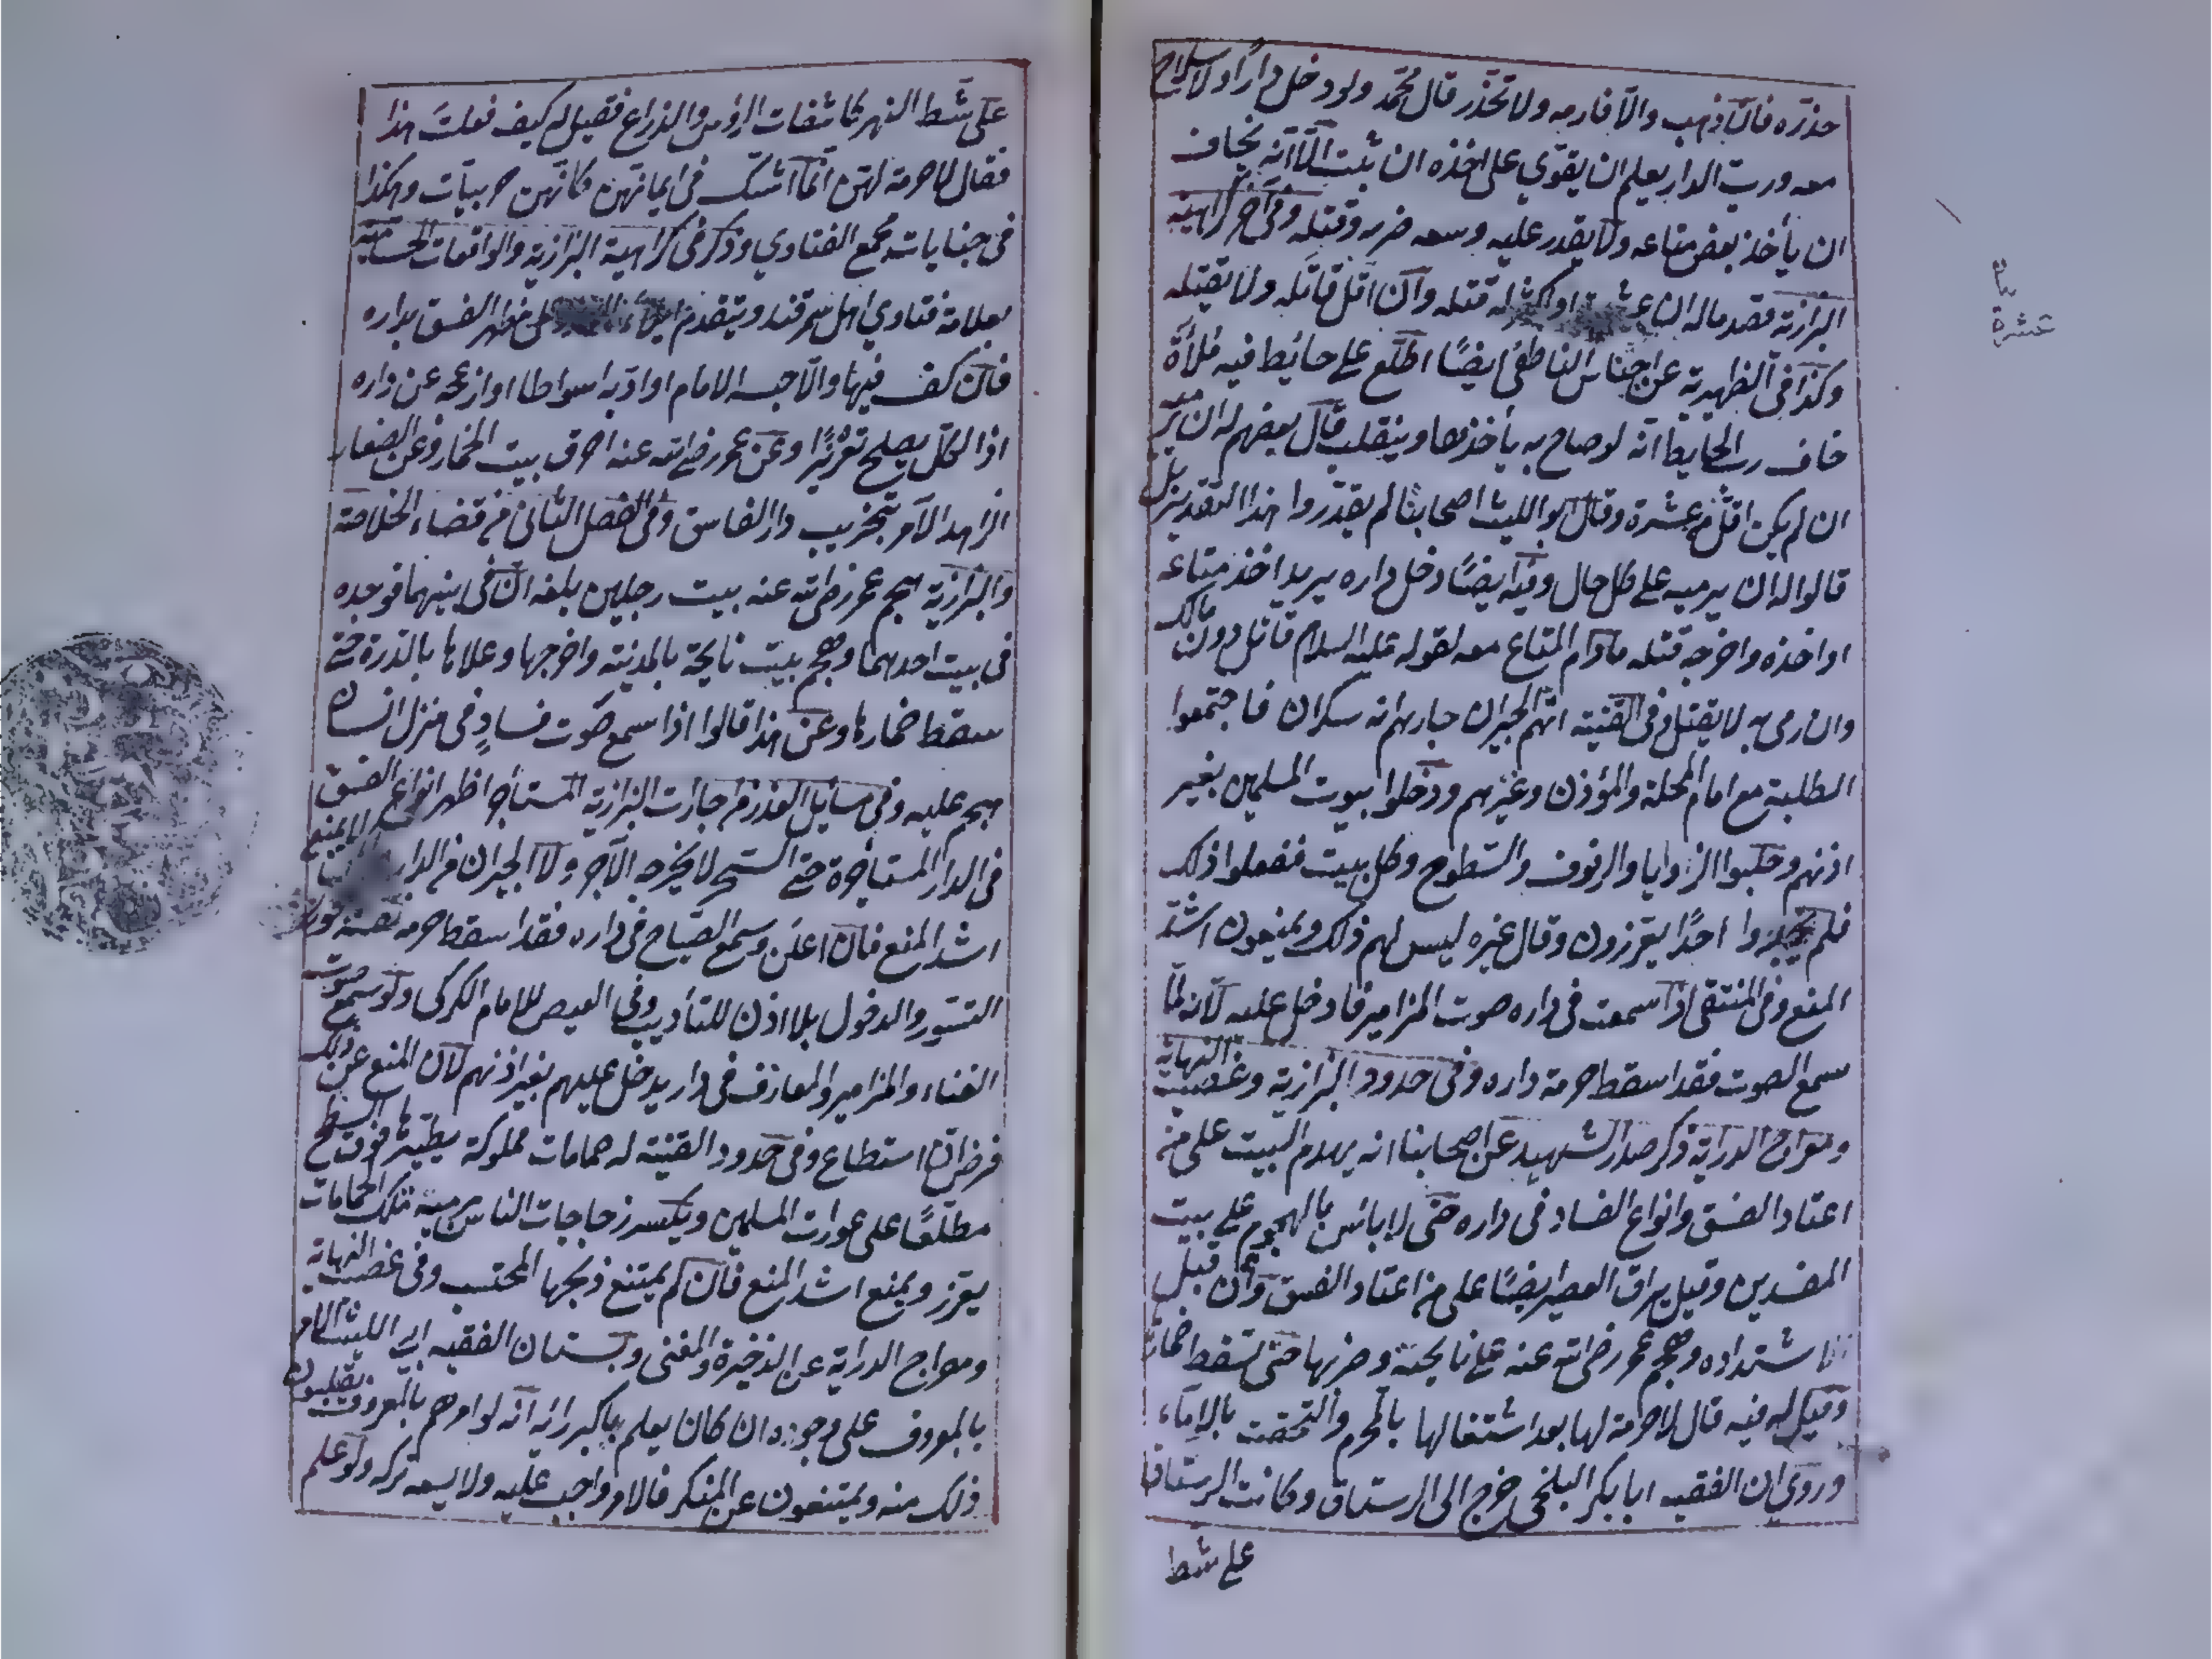 حذره فان ذهب والا فارمه ولا تحذر قال محمد ولو دخل دارا ولا سلاح
معه ورب الدار يعلم ان يقوي على اخذه ان ثبت الا انه يخاف
ان يأخذ بعض متاعه ولا يقدر عليه وسعه ضربه وقتله وفي آخر كراهية
البزازية قصد ماله ان عشرة او اكثر له قتله وان اقل قاتله ولا يقتله
وكذا في الظهيرية عن اجناس الناطفي ايضا اطلع على حائط فيه ملأة
خاف رب الحايط انه لو صاح به يأخذها وينقلب قال بعضهم له ان يرميه
ان لم يكن اقل من عشرة وقال ابو الليث اصحابنا لم يقدروا هذا التقدير بل
قالوا له ان يرميه على كل حال وفيه ايضا دخل داره يريد اخذ متاعه
او اخذه واخرجه قتله مادام المتاع معه لقوله عليه السلام قاتل دون مالك
وان رمى به لا يقتل وفي القنية اتهم الجيران جارهم انه سكران فاجتمعوا
الطلبة مع امام المحلة والمؤذن وغيرهم ودخلوا بيوت المسلمين بغير
اذنهم وطلبوا الزوايا والرفوف والسطوح وكل بيت ففعلوا ذلك
فلم يجدوا احدا يعزرون وقال غيره ليس لهم ذلك ويمنعون اشد
المنع وفي المنتقى اذا سمعت في داره صوت المزامير فادخل عليه لانه لما
سمع الصوت فقد اسقط حرمة داره وفي حدود البزازية وغصب النهاية
ومعراج الدراية ذكر صدر الشهيد عن اصحابنا انه يهدم البيت على من
اعتاد الفسق وانواع الفساد في داره حتى لا بأس بالهجوم على بيت
المفسدين وقيل يراق العصير ايضا على من اعتاد الفسق وان قبل
اشتداده وهجم عمر رضي الله عنه على نايحة وضربها حتى سقط خمارها
وقيل له فيه قال لا حرمة لها بعد اشتغالها بالمحرم والتحقت بالاماء
وروي ان الفقيه ابا بكر البلخي خرج الى الرستاق وكانت الرستاق
على شط
عشرة
على شط النهر كاشفات الرؤس والذراع فقيل له كيف فعلت هذا
فقال لا حرمة لهن انما اشك في ايمانهن كانهن حربيات وهكذا
في جنايات مجمع الفتاوي وذكر في كراهية البزازية والواقعات الحسامية
بعلامة فتاوي اهل سمرقند ويتقدم على مظهر الفسق بداره
فان كف فيها والا حبسه الامام او ادبه اسواطا او ازعجه عن داره
اذ الكل يصلح تعزيرا وعن عمر رضي الله عنه احرق بيت الخمار وعن الصفار
الزاهد الامر بتخريب دار الفاسق وفي الفصل الثاني من قضاء الخلاصة
والبزازية هجم عمر رضي الله عنه بيت رجلين بلغه ان في بيتهما فوجده
في بيت احدهما وهجم بيت نايحة بالمدينة واخرجها وعلاها بالدرة حتى
سقط خمارها وعن هذا قالوا اذا سمع صوت فساد في منزل انسان
هجم عليه وفي مسايل العذر من اجارات البزازية المستأجر اظهر انواع الفسق
في الدار المستأجرة حتى السحر لا يخرجه الآجر ولا الجيران من الدار لا يمنع
اشد المنع فان اعلن وسمع الصياح في داره فقد اسقط حرمة نفسه فجوز
التسور والدخول بلا اذن للتأديب وفي الفيض للامام الكركي ولو سمع صوت
الغناء والمزامير والمعازف في دار يدخل عليهم بغير اذنهم لان المنع عن ذلك
فرض ان استطاع وفي حدود القنية له حمامات مملوكة يطيرها فوق السطح
مطلعا على عورات المسلمين ويكسر زجاجات الناس برميه تلك الحمامات
يعزر ويمنع اشد المنع فان لم يمتنع ذبحها المحتسب وفي غصب النهاية
ومعراج الدراية عن الذخيرة والمغني وبستان الفقيه ابي الليث الامر
بالمعروف على وجوه ان كان يعلم باكبر رائه انه لو امرهم بالمعروف يقبلون
ذلك منه ويمتنعون عن المنكر فالامر واجب عليه ولا يسعه تركه ولو علم